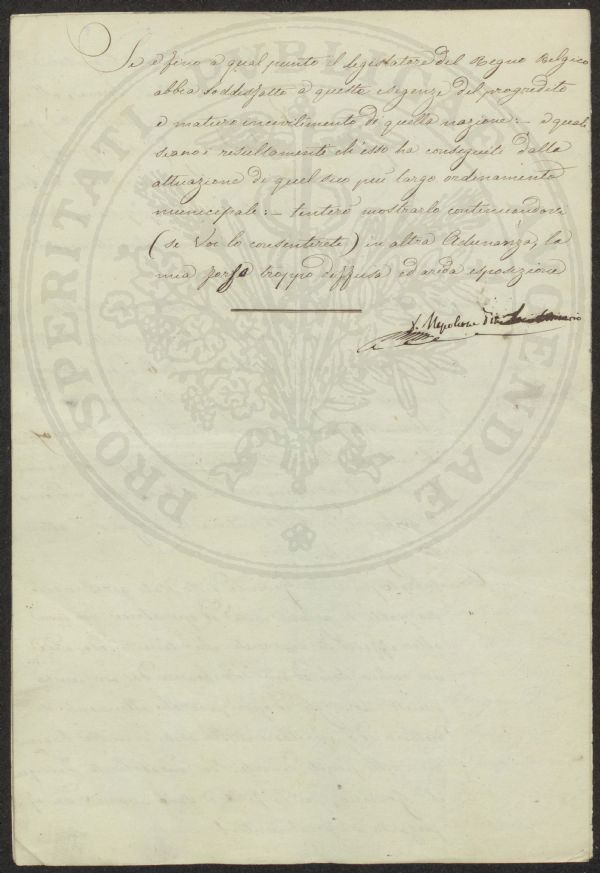 Se e fino a qual punto il legislatore del Regno Belgico
abbia soddisfatto a queste esigenze del progredito
e maturo incivilimento di quella nazione: – e quali
siano i resultamenti ch'esso ha conseguiti dalla
attuazione di quel suo più largo ordinamento
municipale: – tenterò mostrarlo continuandovi
(se Voi lo consentirete) in altra Adunanza, la
mia forse troppo diffusa ed arida esposizione
Napoleone
PROSPERITATI PUBLICAE AUGENDAE